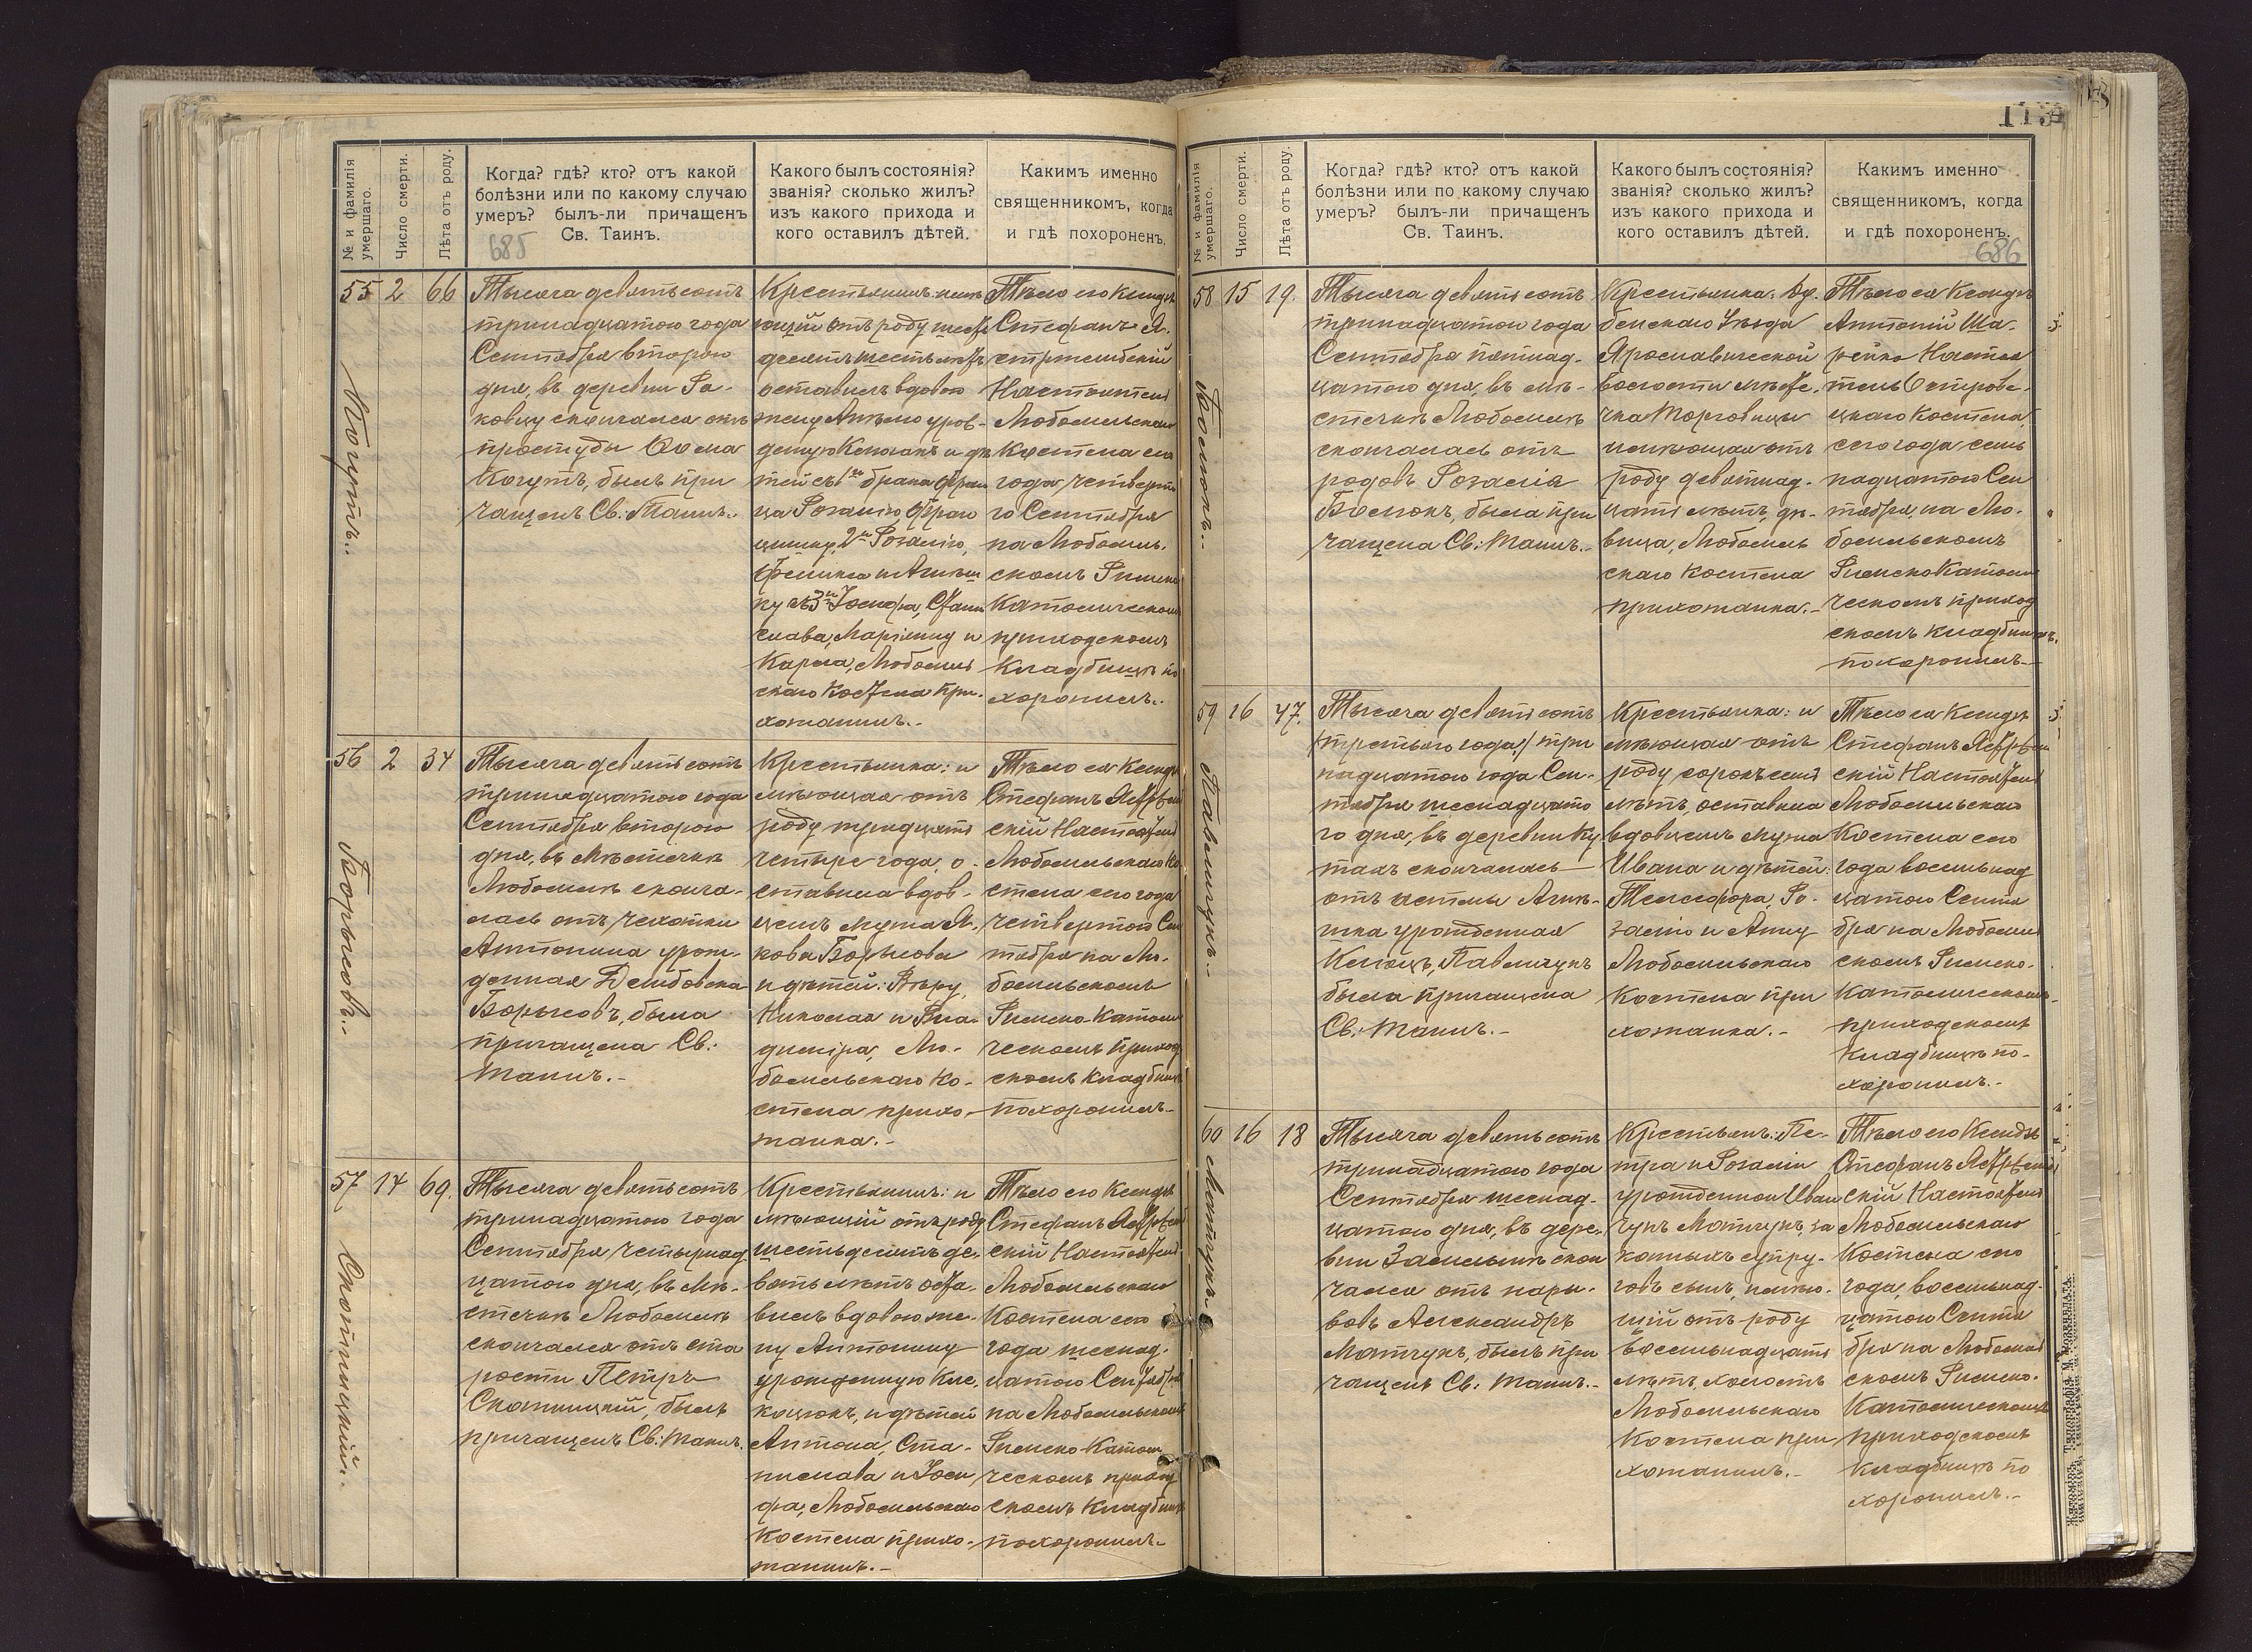 № и фамилія умершаго.
Число смерти.
Лѣта отъ роду.
Когда? гдѣ? кто? отъ какой
болѣзни или по какому случаю
умеръ? былъ-ли причащенъ
Св. Таинъ.
685
Какого былъ состоянія?
званія? сколько жилъ?
изъ какого прихода и
кого оставилъ дѣтей.
Какимъ именно
священникомъ, когда
и гдѣ похороненъ.
55 2 66
Когутъ.
Тысяча девятьсотъ
тринадцатого года
Сентября второго
дня, въ деревни Ра-
ковцу скончался отъ
простуды Ѳома
Когутъ, былъ при
чащенъ Св: Таинъ.
Крестьянинъ: имѣ
ющій отъ роду шесть
десятъ шесть лѣтъ
оставилъ вдовою
жену Анѣлю урож-
денную и дѣ
тей съ 1го брака Фран
ца Розалію Фран
цишку, 2го Розалію,
Феликса и Анѣли
ну съ 3го Іосифа, Стани
слава, Маріанну и
Карла, Любомль
скаго Костела При-
хожанинъ.
Тѣло его Ксендзъ
Стефанъ Я-
стржембскій
Настоятель
Любомльскаго
Костела сего
года, четверта
го Сентября
на Любомль-
скомъ Римско
Католическомъ
приходскомъ
Кладбищѣ по
хоронилъ.
56 2 34
Борысовъ.
Тысяча девятьсотъ
тринадцатого года
Сентября второго
дня, въ Мѣстечкѣ
Любомлѣ сконча-
лась отъ чахотки
Антонина урож-
денная Дембовска
Борысовъ, была
причащена Св:
Таинъ.-
Крестьянка: и
мѣющая отъ
роду тридцать
четыре года, о-
ставила вдов-
цемъ мужа Я-
кова Борысова
и дѣтей: Вѣру,
Николая и Вла-
диміра, Лю-
бомльскаго Ко-
стела прихо-
жанка.-
Тѣло ея Ксендзъ
Стефанъ Ястржемб
скій Настоятель
Любомльскаго Ко
стела сего года
четвертого Сен
тября на Лю-
бомльскомъ
Римско-Католи
ческомъ приход
скомъ Кладбищѣ
похоронилъ.-
57 14 69.
Скопницкій.
Тысяча девятьсотъ
тринадцатого года
Сентября четырнад
цатого дня, въ Мѣ-
стечкѣ Любомлѣ
скончался отъ ста
рости Петръ
Скопницкій, былъ
причащенъ Св: Таинъ.
Крестьянинъ: и
мѣющій отъ роду
шестьдесятъ де-
вять лѣтъ оста-
вилъ вдовою же-
ну Антонину
урожденную Кли-
кацюкъ, и дѣтей
Антона, Ста-
нислава и Іоси
фа, Любомльскаго
Костела прихо-
жанинъ.-
Тѣло его Ксендзъ
Стефанъ Ястржемб
скій Настоятель
Любомльскаго
Костела сего
года шестнад-
цатого Сентября
на Любомльскомъ
Римско-Католи
ческомъ приход
скомъ Кладбищѣ
похоронилъ.-
113
№ и фамилія умершаго.
Число смерти.
Лѣта отъ роду.
Когда? гдѣ? кто? отъ какой
болѣзни или по какому случаю
умеръ? былъ-ли причащенъ
Св. Таинъ.
Какого былъ состоянія?
званія? сколько жилъ?
изъ какого прихода и
кого оставилъ дѣтей.
Какимъ именно
священникомъ, когда
и гдѣ похороненъ.
686
58 15 19.
Тысяча девятьсотъ
тринадцатого года
Сентября пятнад-
цатого дня, въ мѣ-
стечкѣ Любомлѣ
скончалась отъ
родовъ Розалія
была при
чащена Св: Таинъ.-
Крестьянка: Ду-
бенскаго Уѣзда
Ярославической
волости мѣсте-
чка Торговицы
имѣющая отъ
роду девятнад-
цать лѣтъ, дѣ-
вица, Любомль
скаго Костела
прихожанка.-
Тѣло ея Ксендзъ
Антоній Ша-
рейко Настоя
тель Островс-
цкаго Костела,
сего года семь
надцатого Сен
тября, на Лю-
бомльскомъ
Римско Католи
ческомъ приход
скомъ кладбищѣ
похоронилъ.-
59 16 47.
Павлищукъ.
Тысяча девятьсотъ
/третьяго года/ три
надцатого года Сен-
тября шеснадцато
го дня, въ деревни Ку
тахъ скончалась
отъ астмы Агнѣ-
шка урожденная
Клюцъ, Павлищукъ
была причащена
Св: Таинъ.-
Крестьянка: и
мѣющая отъ
роду сорокъ семь
лѣтъ, оставила
вдовцемъ мужа
Ивана и дѣтей:
Телесфора, Ро-
залію и Анну
Любомльскаго
Костела при
хожанка.-
Тѣло ея Ксендзъ
Стефанъ Ястржемб
скій Настоятель
Любомльскаго
Костела сего
года восемьнад
цатого Сентя
бря на Любомль
скомъ Римско-
Католическомъ
приходскомъ
Кладбищѣ по-
хоронилъ.-
60 16 18
Матчукъ.
Тысяча девятьсотъ
тринадцатого года
Сентября шеснад-
цатого дня, въ дере-
вни скон
чался отъ нары-
вовъ Александръ
Матчукъ, былъ при
чащенъ Св: Таинъ.-
Крестьянъ: Пе-
тра и Розаліи
урожденной Иван
чукъ Матчукъ, за
конныхъ супру-
говъ сынъ, имѣю-
щій отъ роду
восемьнадцать
лѣтъ, холостъ
Любомльскаго
Костела при
хожанинъ.-
Тѣло его Ксендзъ
Стефанъ Ястржемб
скій Настоятель
Любомльскаго
Костела сего
года, восемьнад-
цатого Сентя
бря на Любомль
скомъ Римско-
Католическомъ
приходскомъ
Кладбищѣ по
хоронилъ.-